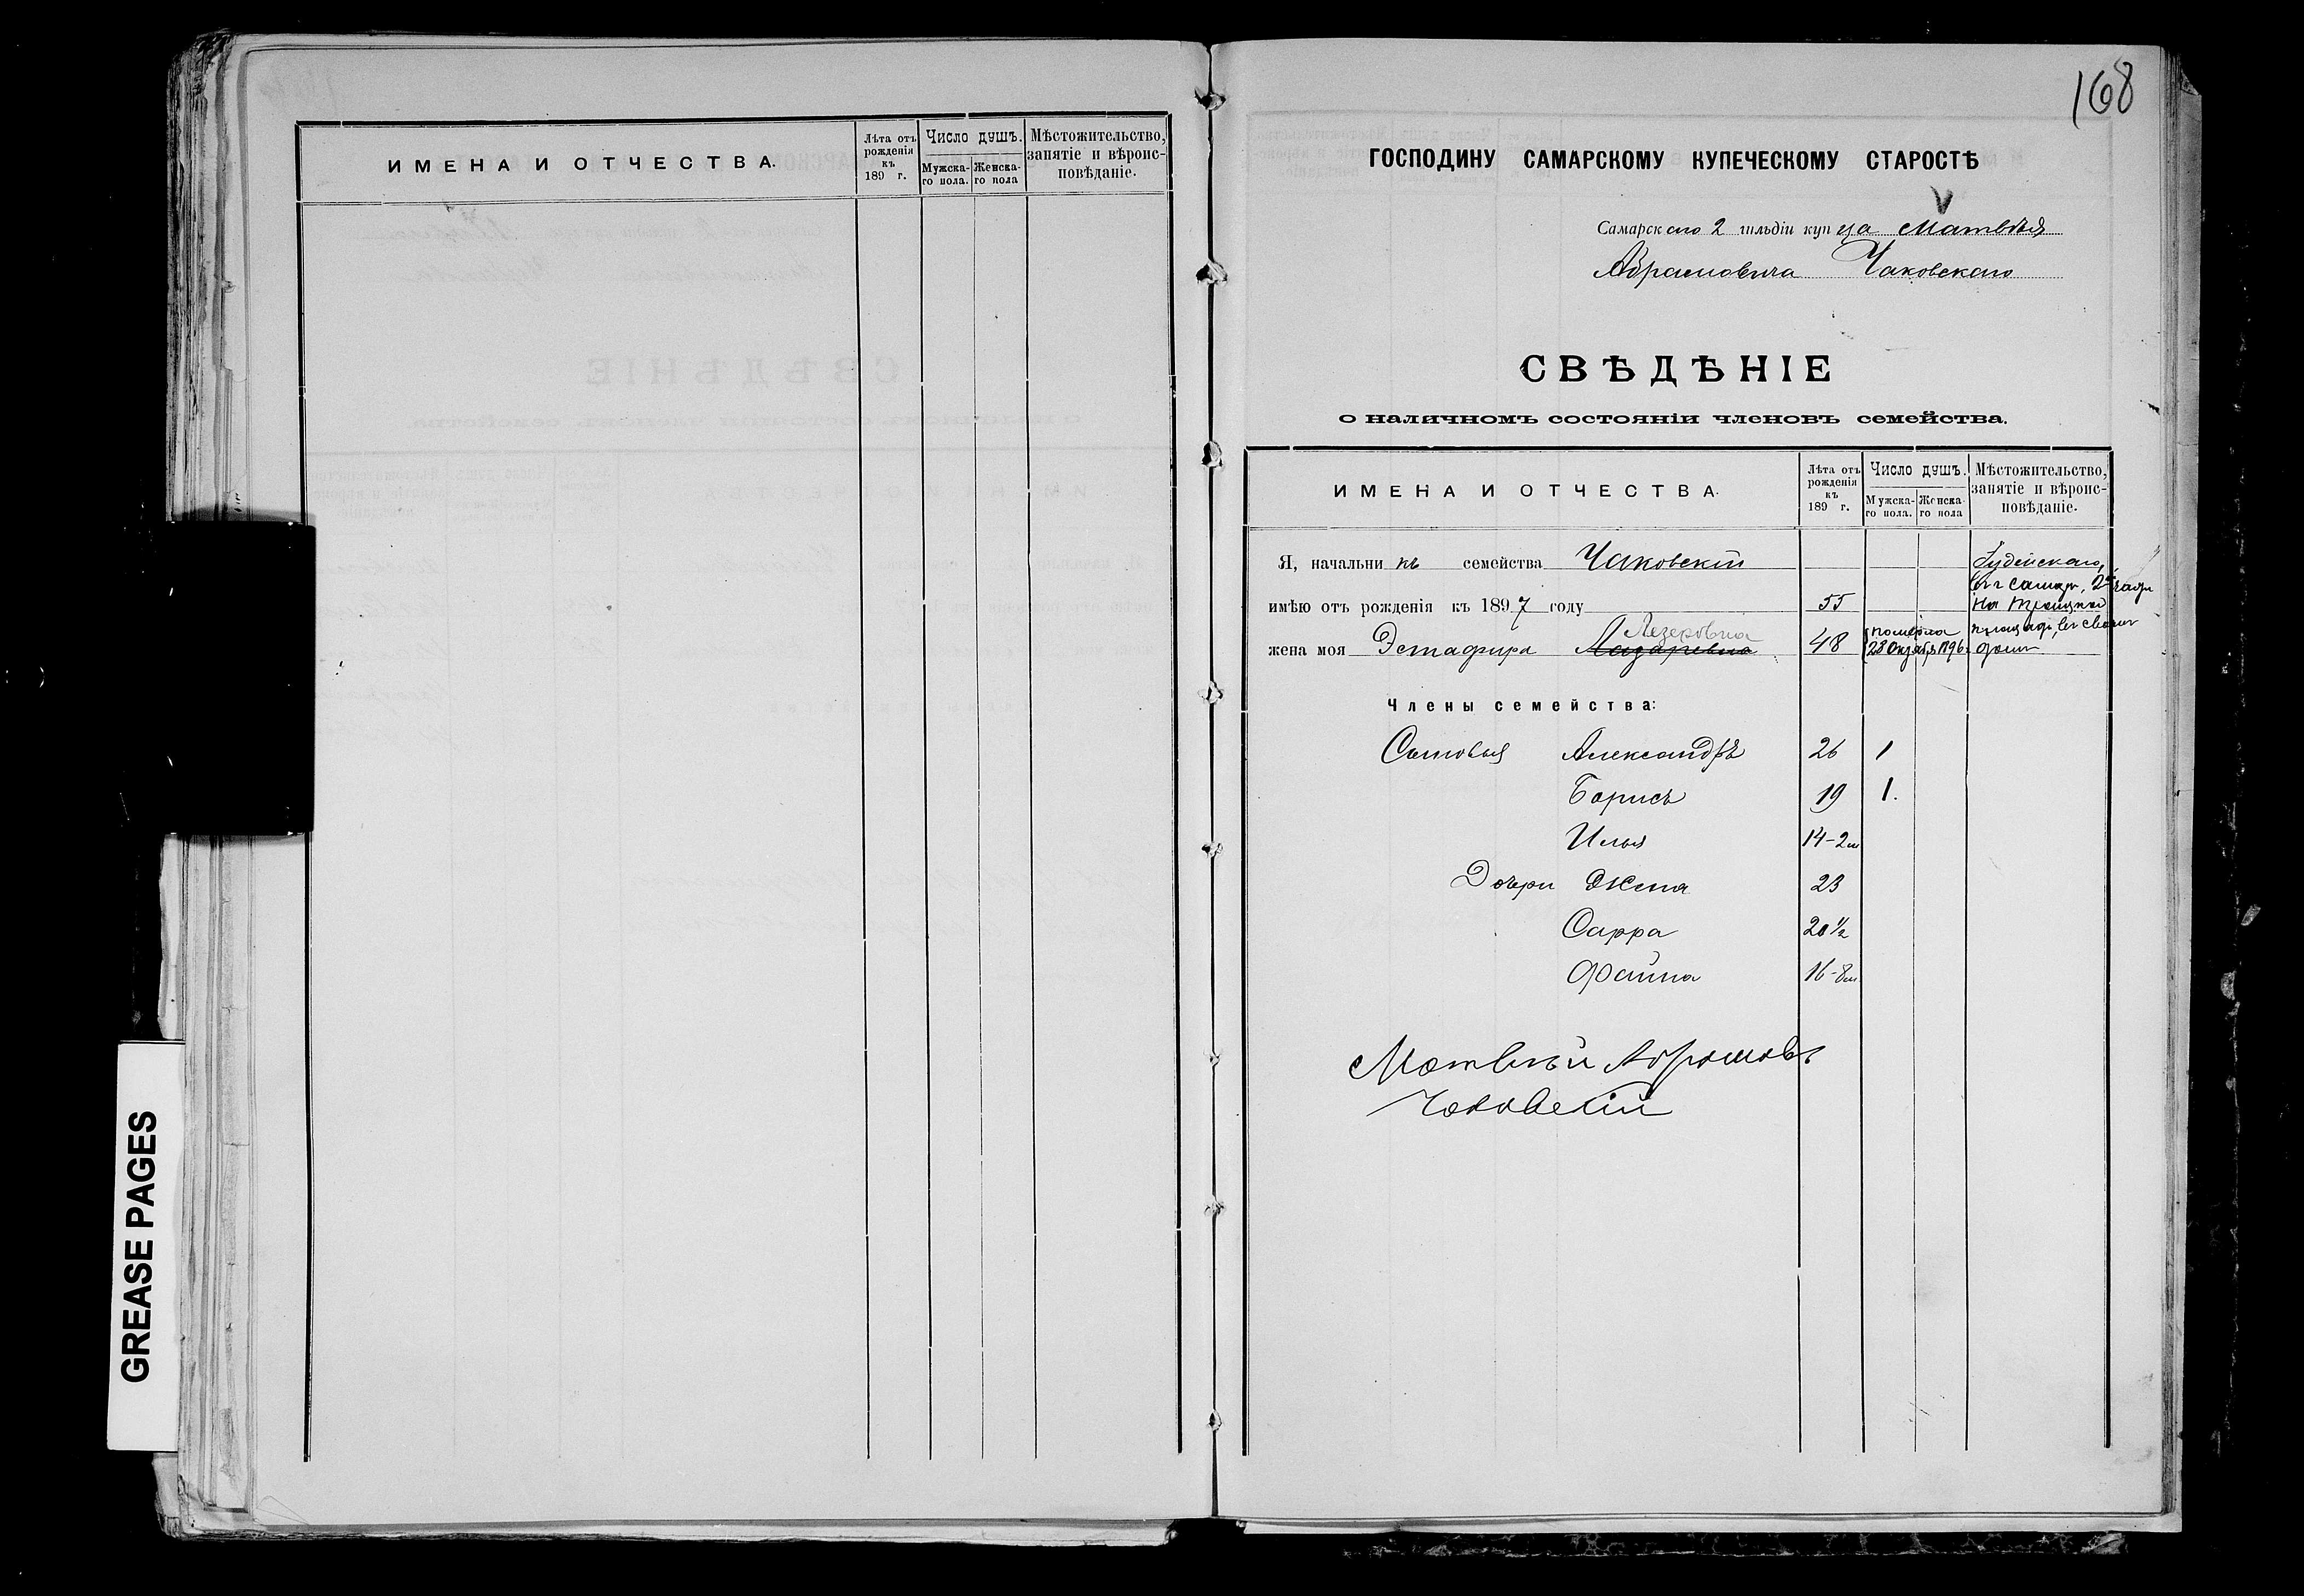 ИМЕНА И ОТЧЕСТВА.
Лѣта отъ рожденія къ 189 г.
Число душъ.
Мужска-го пола.
Женска-го пола
Мѣстожительство, занятіе и вѣроис-повѣданіе.
GREASE PAGES
168
ГОСПОДИНУ САМАРСКОМУ КУПЕЧЕСКОМУ СТАРОСТѢ
Самарскаго 2 гильдіи купца Матвѣя
Абрамовича Чаковскаго
СВѢДѢНІЕ
о наличномъ состояніи членовъ семейства.
ИМЕНА И ОТЧЕСТВА.
Лѣта отъ рожденія къ 189 г.
Число душъ.
Мужска-го пола.
Женска-го пола
Мѣстожительство, занятіе и вѣроис-повѣданіе.
Я, начальникъ семейства Чаковскій
Іудейскаго,
въ г Самарѣ, 2й части
имѣю отъ рожденія къ 1897 году 55
на Троицкой
Лезеровна
жена моя Эстафира Лазаревна 48
померла
28 Октября 1896
площади, въ своемъ
домѣ
Члены семейства:
Сыновья Александръ 26 1
Борисъ 19 1.
Илья 14-2м
Дочери Женя 23
Сарра 20 1/2
Фаина 16-8м
Матвѣй Абрамовъ
Чаковскій